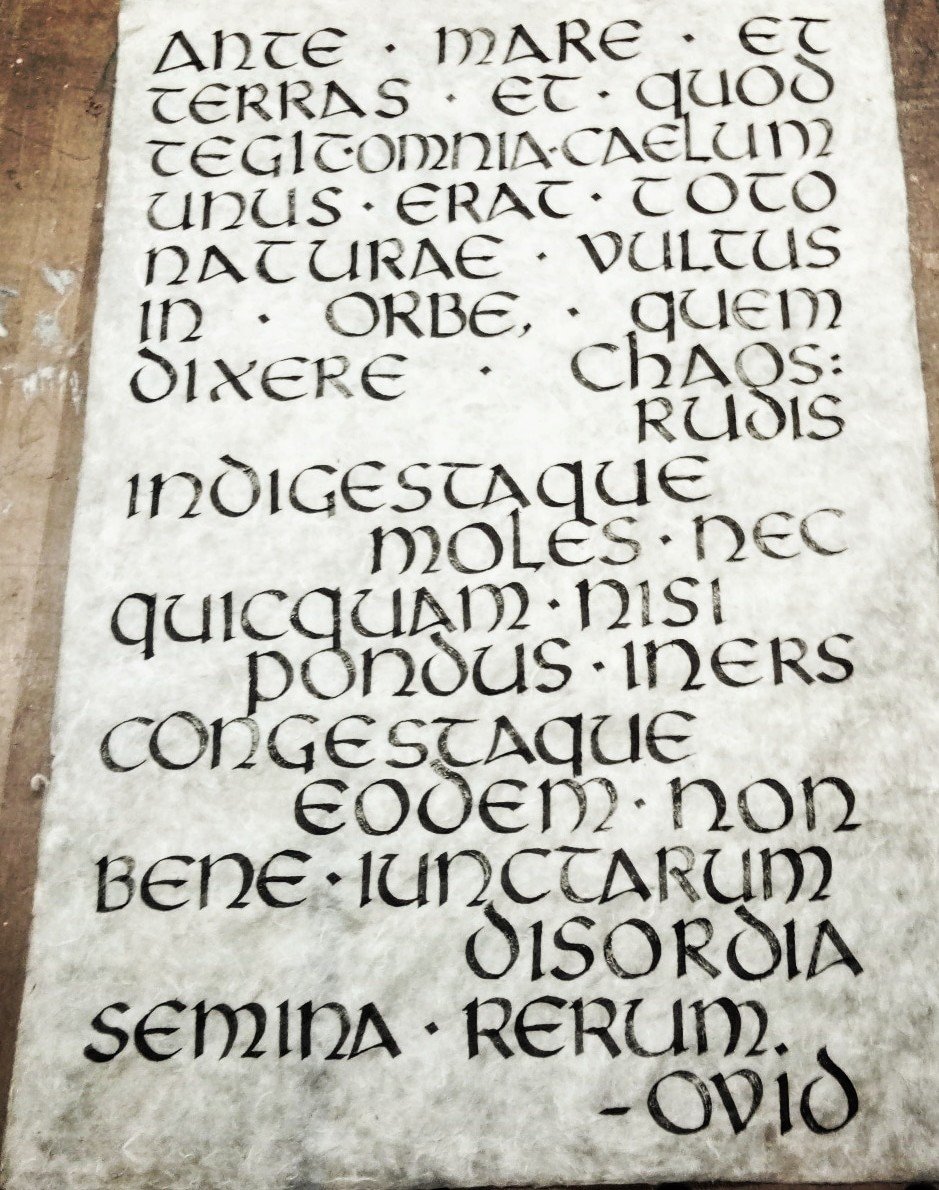 ANTE · MARE · ET
TERRAS · ET · QUOD
TEGIT·OMNIA·CAELUM
UNUS · ERAT · TOTO
NATURAE · VULTUS
IN · ORBE, · QUEM
DIXERE · CHAOS:
RUDIS
INDIGESTAQUE
MOLES · NEC
QUICQUAM · NISI
PONDUS · INERS
CONGESTAQUE
EODEM · NON
BENE · IUNCTARUM
DISORDIA
SEMINA · RERUM.
-OVID